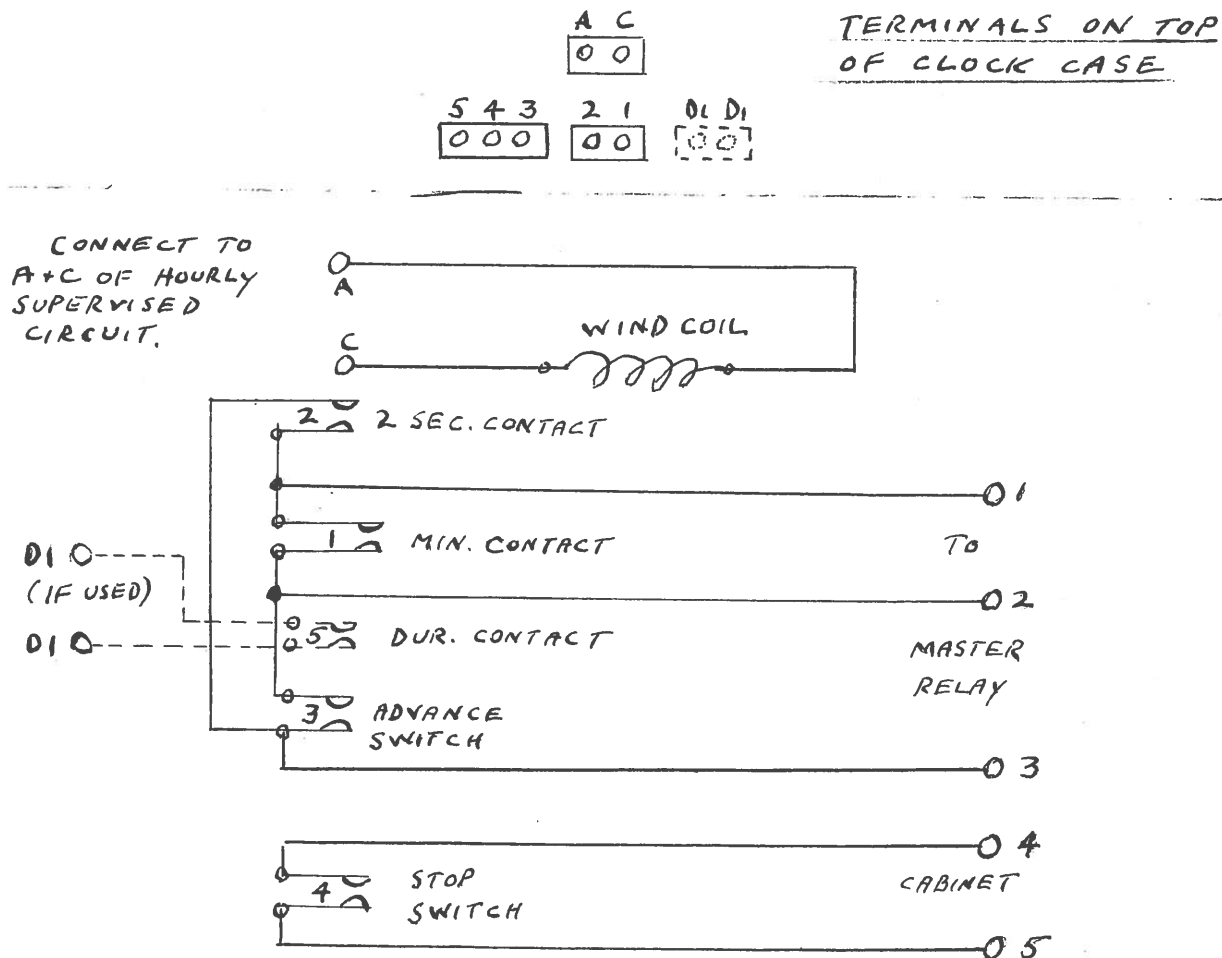 A C
TERMINALS ON TOP
OF CLOCK CASE
5 4 3 2 1 D1 D1
CONNECT TO
A+C OF HOURLY
SUPERVISED
CIRCUIT.
A
WIND COIL
C
2 2 SEC. CONTACT
1
1 MIN. CONTACT
TO
D1
(IF USED)
2
5 DUR. CONTACT
D1
MASTER
RELAY
3 ADVANCE
SWITCH
3
4
4 STOP
SWITCH
CABINET
5